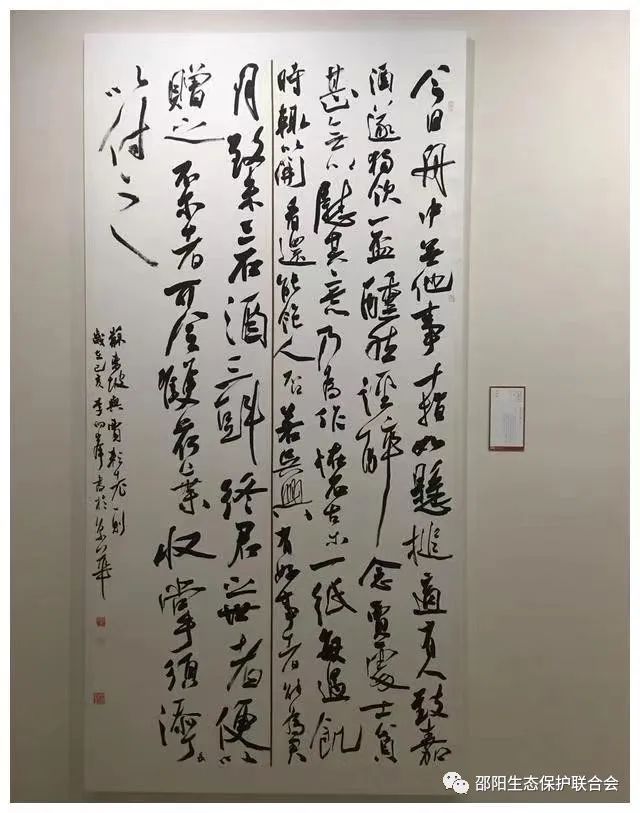 今日舟中無他事十指如懸槌適有人致嘉
酒遂獨飲一盃醺然逕醉念賈處士貧
甚無以慰其意乃為作怪石古木一紙每遇飢
時輒以開看還能飽人否若吳興有好事者能為君
月致米三石酒三斗終君之世者便以
贈之不尔者可令雙荷葉收掌須添丁長
以付之也
蘇東坡與賈耘老一則
歲在己亥李書於京華
邵阳生态保护联合会